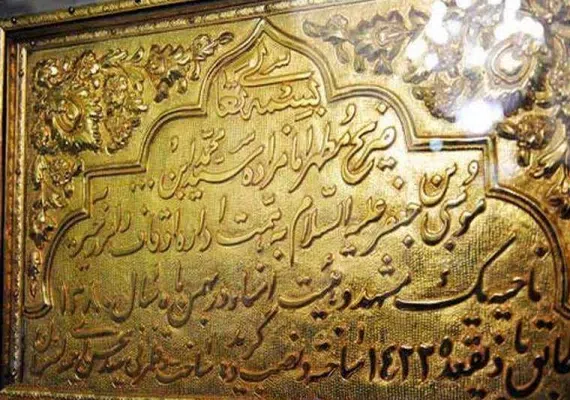 بسمه تعالی
ضریح مطهر امامزاده سید محمد ابن ...
موسی بن جعفر علیه السلام به همت اداره اوقاف و امور خیریه
ناحیه یک مشهد و هیئت امناء در بهمن ماه سال ۱۳۸۰
ذیقعده ۱۴۲۲ ساخته و نصب گردید ساخت